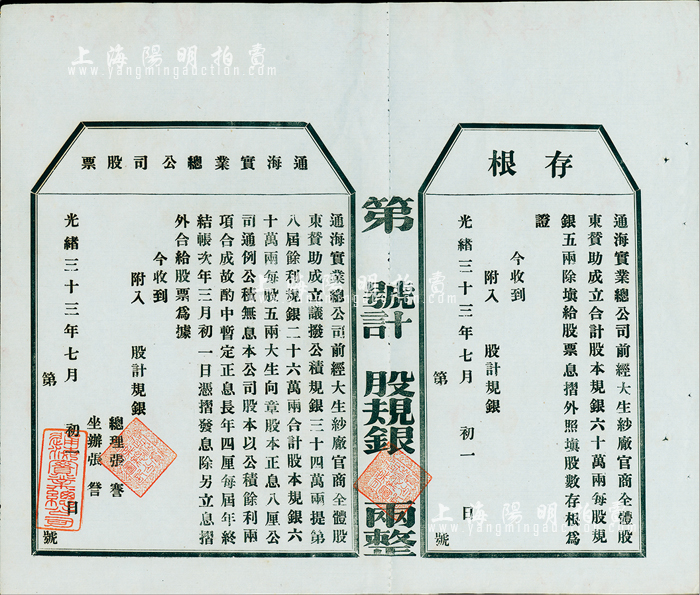 上海陽明拍賣
www.yangmingauction.com
存根
通海實業總公司前經大生紗廠官商全體股
東贊助成立合計股本規銀六十萬兩每股規
銀五兩除填給股票息摺外照填股數存根爲
證
今收到
附入 股計規銀
光緒三十三年七月 初一 日
第 號
第 號計 股規銀 兩整
通海實業總公司股票
通海實業總公司前經大生紗廠官商全體股
東贊助成立議撥公積規銀三十四萬兩提第
八屆餘利規銀二十六萬兩合計股本規銀六
十萬兩每股五兩大生向章股本正息八厘公
司通例公積無息本公司股本以公積餘利兩
項合成故酌中暫定正息長年四厘每屆年終
結帳次年三月初一日憑摺發息除另立息摺
外合給股票爲據
今收到
附入 股計規銀
光緒三十三年七月 初一 日
總理張謇
坐辦張詧
第 號
通海實業總公司
上海陽明拍賣
www.yangmingauction.com